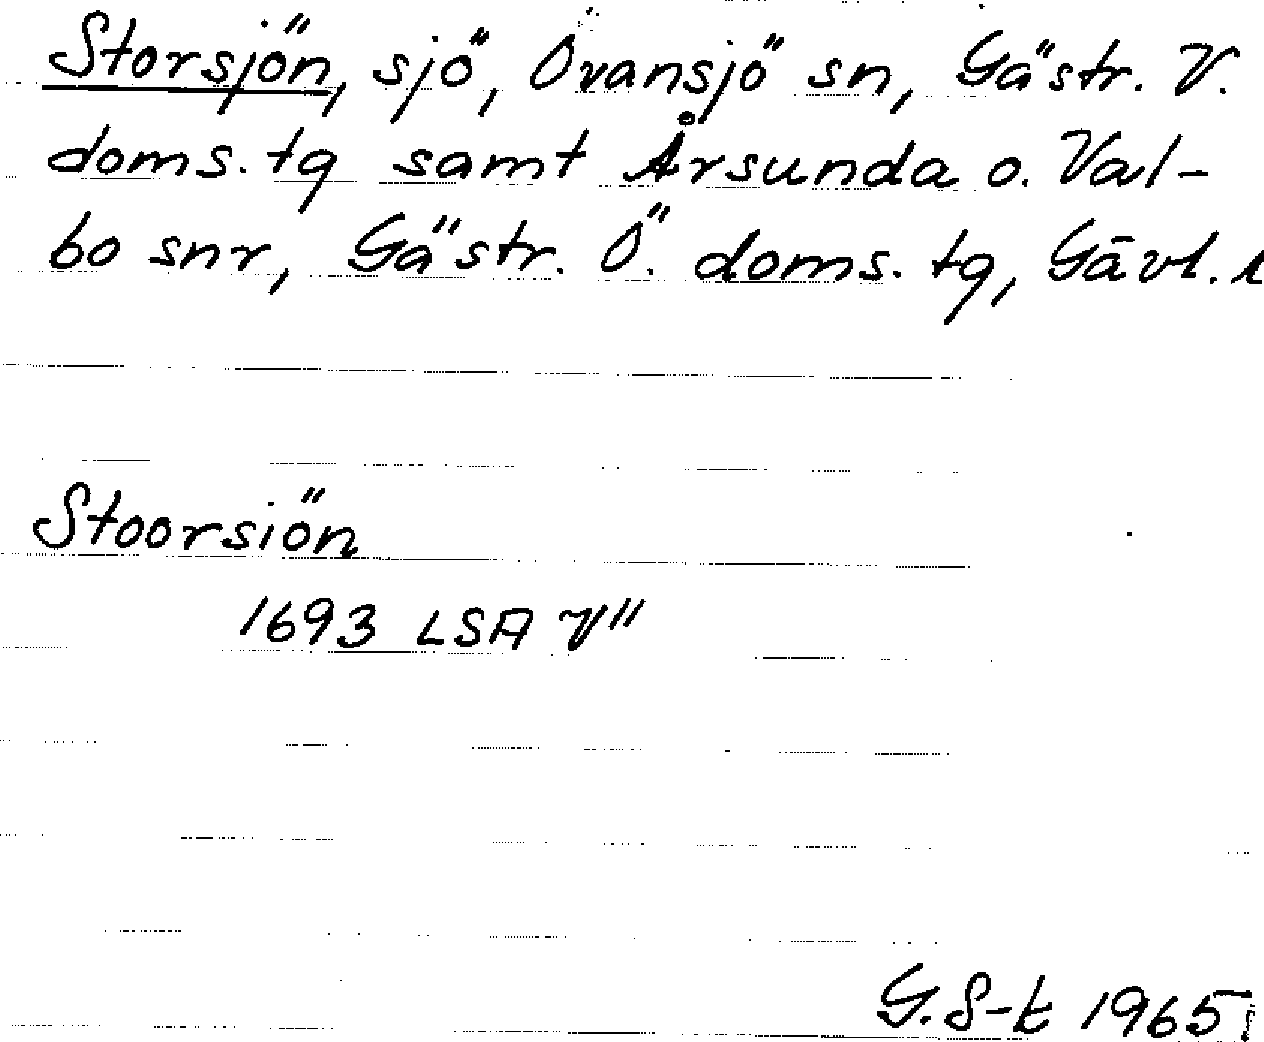 Storsjön, sjö, Ovansjö sn, Gästr. V.
doms. tg samt Årsunda o. Val-
bo snr, Gästr. Ö. doms. tg, Gävl. l
Stoorsiön
1693 LSA V"
G. S-t 1965